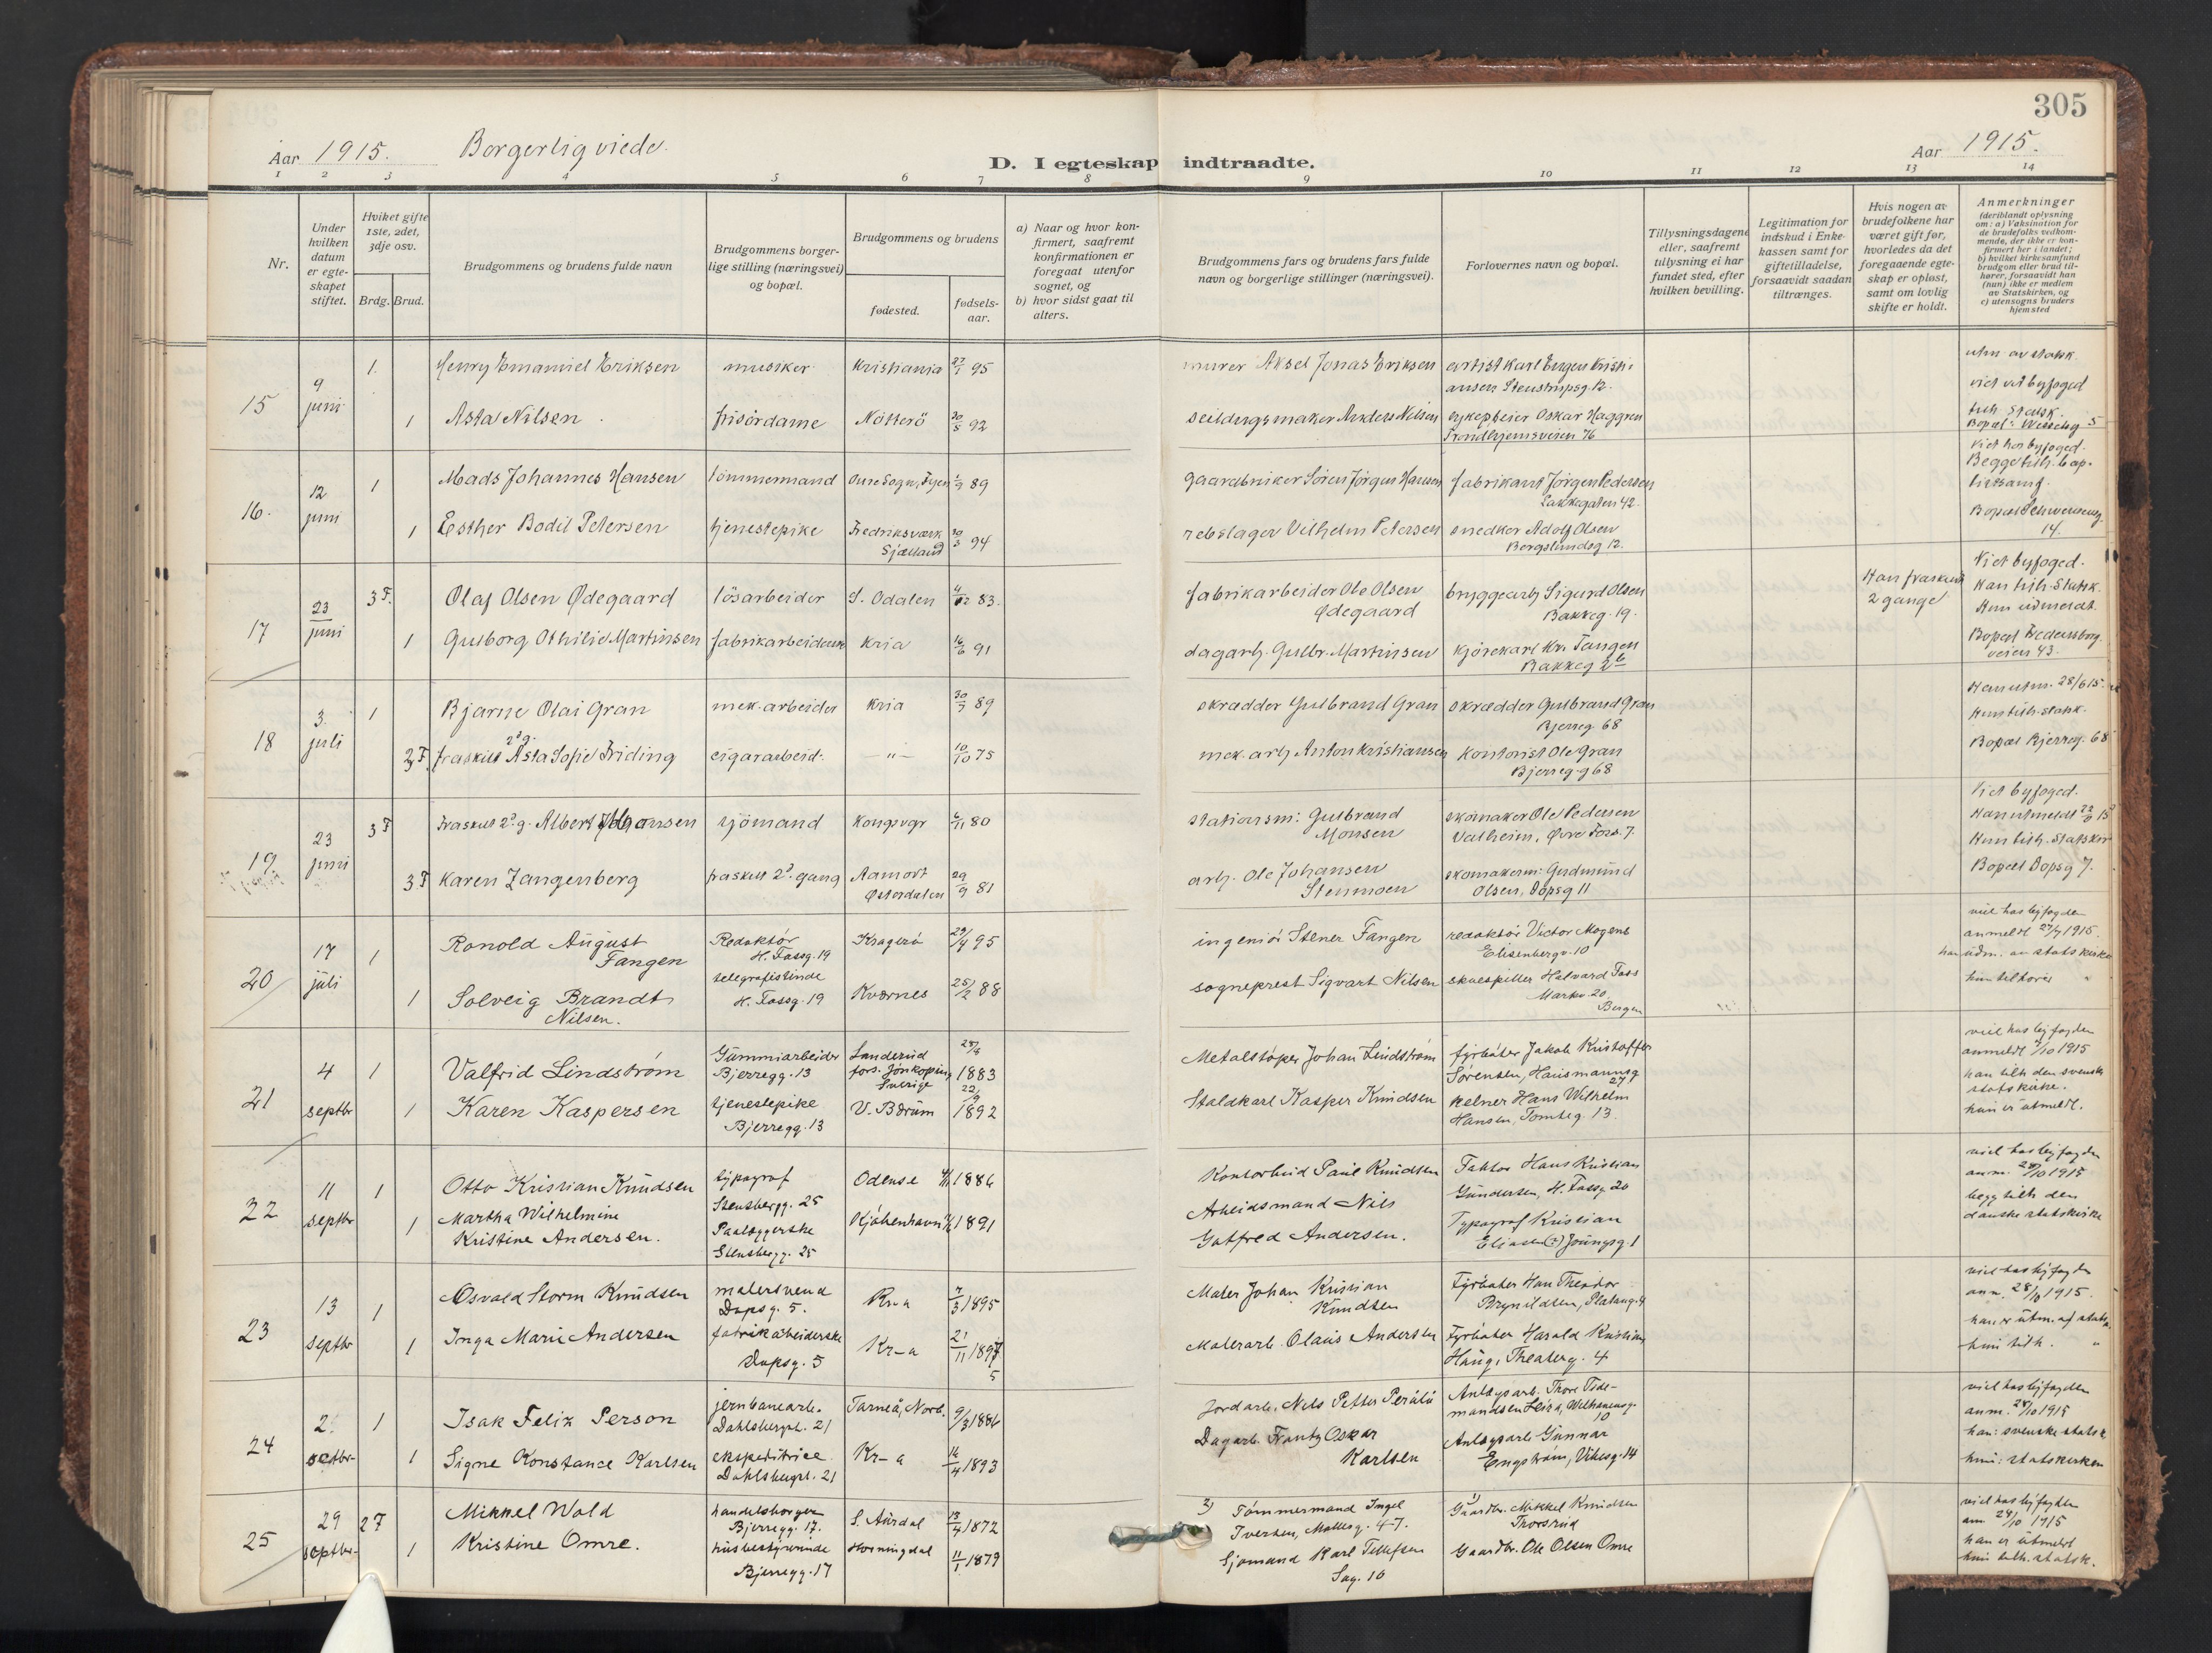 305
Aar 1915. Borgerlig viede.
D. I egteskap indtraadte.
Aar 1915.
1 2 3 4 5 6 7 8 9 10 11 12 13 14
Nr.
Under hvilken datum er egteskapet stiftet.
Hviket gifte 1ste, 2det, 3dje osv.
Brdg. Brud.
Brudgommens og brudens fulde navn
Brudgommens borgerlige stilling (næringsvei) og bopæl.
Brudgommens og brudens
fødested.
fødselsaar.
a) Naar og hvor konfirmert, saafremt konfirmationen er foregaat utenfor sognet, og
b) hvor sidst gaat til alters.
Brudgommens fars og brudens fars fulde navn og borgerlige stillinger (næringsvei).
Forlovernes navn og bopæl.
Tillysningsdagene eller, saafremt tillysning ei har fundet sted, efter hvilken bevilling.
Legitimation for indskud i Enkekassen samt for giftetilladelse, forsaavidt saadan tiltrænges.
Hvis nogen av brudefolkene har været gift før, hvorledes da det foregaaende egteskap er opløst, samt om lovlig skifte er holdt.
Anmerkninger (deriblandt oplysning om: a) Vaksination for de brudefolks vedkommende, der ikke er konfirmert her i landet; b) hvilket kirkesamfund brudgom eller brud tilhører, forsaavidt han (hun) ikke er medlem av Statskirken, og c) utensogns bruders hjemsted
15 9 juni 1. Henry Emanuel Eriksen musiker Kristiania 27/1 95 murer Aksel Jonas Eriksen artist Karl Eugen Kristiansen Steenstrupsg. 12. utm av statsk.
viet ved byfoged
1 Asta Nilsen frisördame Nötterö 20/5 92 seildugsmaker Anders Nilsen cykepleier Oskar Haggren Trondhjemsveien 76 tilh. Statsk.
Bopæl: Wesselsg 5
16. 12 juni 1 Mads Johannes Hansen tömmermand Oure Sogn, Fyen 1/9 89 gaardbruker Sören Jörgen Hansen fabrikant Jörgen Pedersen Lakkegaten 42. Viet hos byfoged.
Begge tilh. baptistsamf.
1 Esther Bodil Petersen tjenestepike Fredriksværk Sjælland 30/3 94 rebslager Vilhelm Petersen snedker Adolf Olsen Bergslundsg 12. Bopæl Schweensensg. 14.
17 23 juni 3 F. Olaf Olsen Ødegaard lösarbeider S. Odalen 83. fabrikarbeider Ole Olsen Ødegaard bryggearb Sigurd Olsen Bakkeg. 19. Han fraskilt 2 gange Viet byfoged.
Han tilh. Statsk.
Hun udmeldt.
1 Gulborg Othilie Martinsen fabrikarbeiderske Kria 16/6 91 dagarb. Gulbr. Martinsen kjörekarl Kr. Tangen Bakkeg 2b Bopæl Fredensborgveien 43.
18 3. juli 1 Bjarne Olai Gran mek. arbeider Kria 30/7 89 skrædder Gulbrand Gran skrædder Gulbrand Gran Bjerreg. 68 Han utm. 28/6 15.
Hun tilh. statsk.
2 F. fraskilt 2d g. Asta Sofie Friding cigararbeid. —"— 10/10 75 mek. arb Anton Kristiansen kontorist Ole Gran Bjerreg. 68 Bopæl Bjerreg. 68
19 23 juni 3 F fraskilt 2d g. Albert Johansen sjömand Kongsvgr 6/11 80 stationsm: Gulbrand Monsen skomaker Ole Pedersen Valheim, Övre Foss. 7. Viet byfoged.
Han utmeldt
Hun tilh. Statskir
3 F Karen Zangenberg fraskilt 2d. gang Aamodt Østerdalen 29/9 81 arb. Ole Johansen Stenmoen skomakerm: Gudmund Olsen, Dopsg 11 Bopæl Dopsg 7.
20 17 juli 1 Ronold August Fangen Redaktør H. Tassg. 19 Kragerø 29/4 95 ingeniør Stener Fangen redaktør Victor Mogens Elisenbergv. 10 viet hos byfogden
anmeldt 27/7 1915.
han udm. av statskirken
1 Solveig Brandt Nilsen. telegrafistinde H. Tassg. 19 Kvernes 25/2 88 sogneprest Sigvart Nilsen skuespiller Halvard Foss Markv. 20. Bergen hun tilhører "
21 4 septbr 1 Valfrid Lindstrøm Gummiarbeider Bjerregg. 13 Sanderud fors. Jönköping Sverige 1883 Metalstøper Johan Lindstrøm fyrbøter Jakob Kristoffer Sørensen, Hausmannsg 27 viet hos byfogden
anmeldt /10 1915
han tilh den svenske statskirke.
1 Karen Kaspersen tjenestepike Bjerregg. 13 V. Bærum 22/9 1892 Staldkarl Kasper Knudsen kelner Hans Wilhelm Hansen, Tomteg. 13. hun er utmeldt.
22 11 septbr 1 Otto Kristian Knudsen typograf Stensbergg. 25 Odense 1886 Kontorbud Paul Knudsen Faktor Hans Kristian Gundersen, H. Tassg 20 viet hos byfogden
anm. 28/10 1915
begg tilh den danske statskirke
1 Martha Wilhelmine Kristine Andersen. Paalæggerske Stensbergg. 25 Kjøbenhavn 1891 Arbeidsmand Nils Gotfred Andersen. Typograf Kristian Eliasen (?) Youngsg. 1
23 13 septbr 1 Osvald Storm Knudsen malersvend Dopsg. 5. Kr-a 7/3 1895 Maler Johan Kristian Knudsen Fyrbøter Hans Theodor Brynildsen, Platoug. 4 viet hos byfogden
anm. 28/10 1915.
han er utm. af statsk.
1 Inga Marie Andersen fabrikarbeiderske Dopsg. 5 Kr-a 21/11 1897 5 Malerarb. Olaus Andersen Fyrbøter Harald Kristian Haug, Theaterg. 4 hun tilh. "
24 2. octbr- 1 Isak Felix Person jernbanearb. Dahlsbergpl. 21 Tarneå, Norb. 9/3 1886 Jordarb. Nils Petter Anlægsarb. Thore Tidemandsen Leira, Wilhelmsg. 10 viet hos byfogden
anm. 28/10 1915
han: svenske statsk
1 Signe Konstance Karlsen ekspeditrice Dahlsbergst. 21 Kr-a 16/4 1893 Dagarb. Frantz Oskar Karlsen Anlægsarb Gunnar Engstrøm, Vibesg. 14 hun: statskirken
25 29 septbr- 2 F Mikkel Wold handelsborger Bjerregg. 17. S. Aurdal 13/4 1872 3) Tømmermand Ingel Iversen, Mølleg. 47. 1) Gaardbr. Mikkel Knudsen Thorsrud viet hos byfogden
anm 29/10 1915
han er utmeldt
1 Kristine Omre. husbestyrerinde Bjerregg. 17 Horningdal 11/1 1879 Sjømand Karl Tellefsen Sag. 10 Gaardbr. Ole Olsen Omre hun tilh. statsk.